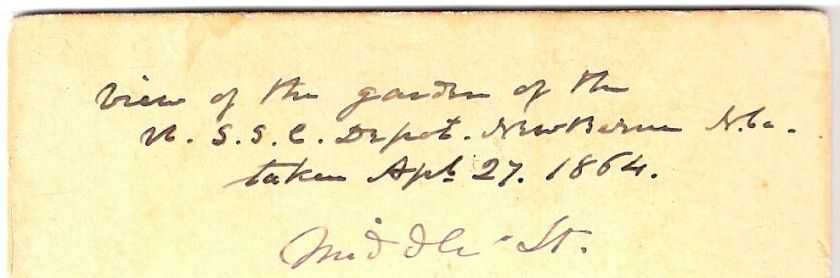 View of the garden of the
U. S. S. C. Depot. NewBerne N.Ca.
taken Apl 27. 1864.
Middle St.